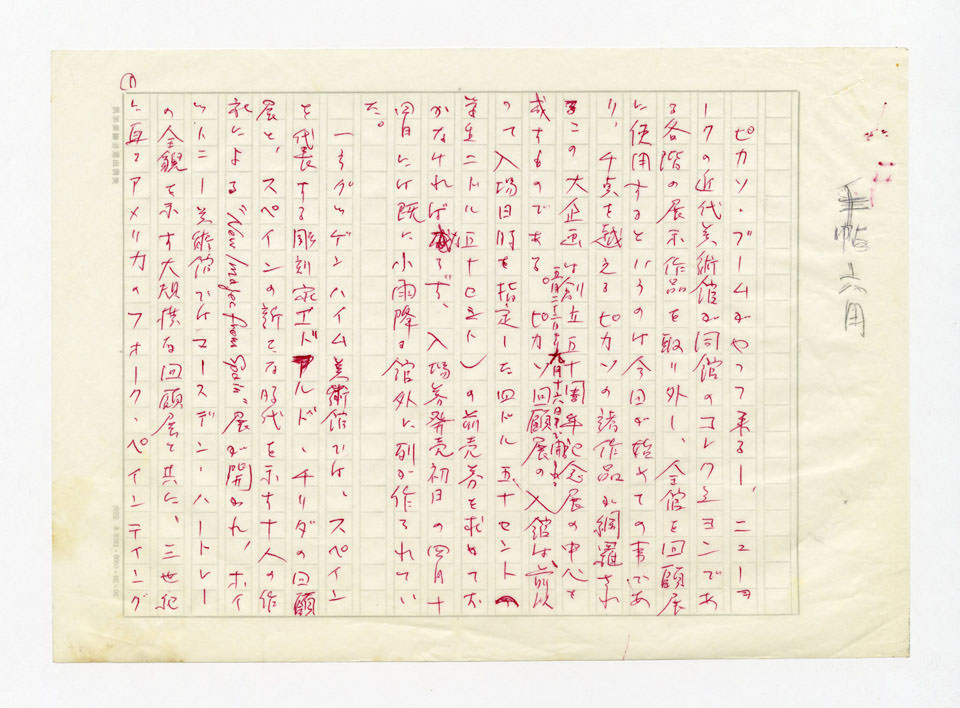 手帖 六月
①
ピカソ・ブームがやって来る!、ニューヨ
ークの近代美術館が同館のコレクションであ
る各階の展示作品を取り外し、全館を回顧展
に使用するというのは今回が始めての事であ
り、千点を越えるピカソの諸作品が網羅され
るこの大企画は創立五十周年記念展の中心を
成すものである。ピカソ回顧展の入館は、前以
五月二十二日より九月十六日まで開かれる
って入場日時を指定した四ドル五十セント
学生二ドル五十セント)の前売券を求めてお
かなければならず、入場券発売初日の四月十
四日には既に小雨降る館外に列が作られてい
た。
一方グッゲンハイム美術館では、スペイン
を代表する彫刻家エドアルド・チリダの回顧
展と、スペインの新たな時代を示す十人の作
家による"New Images from Spain"展が開かれ、ホイ
ットニー美術館ではマースデン・ハートレー
の全貌を示す大規模な回顧展と共に、三世紀
に亘るアメリカのフォーク・ペインティング